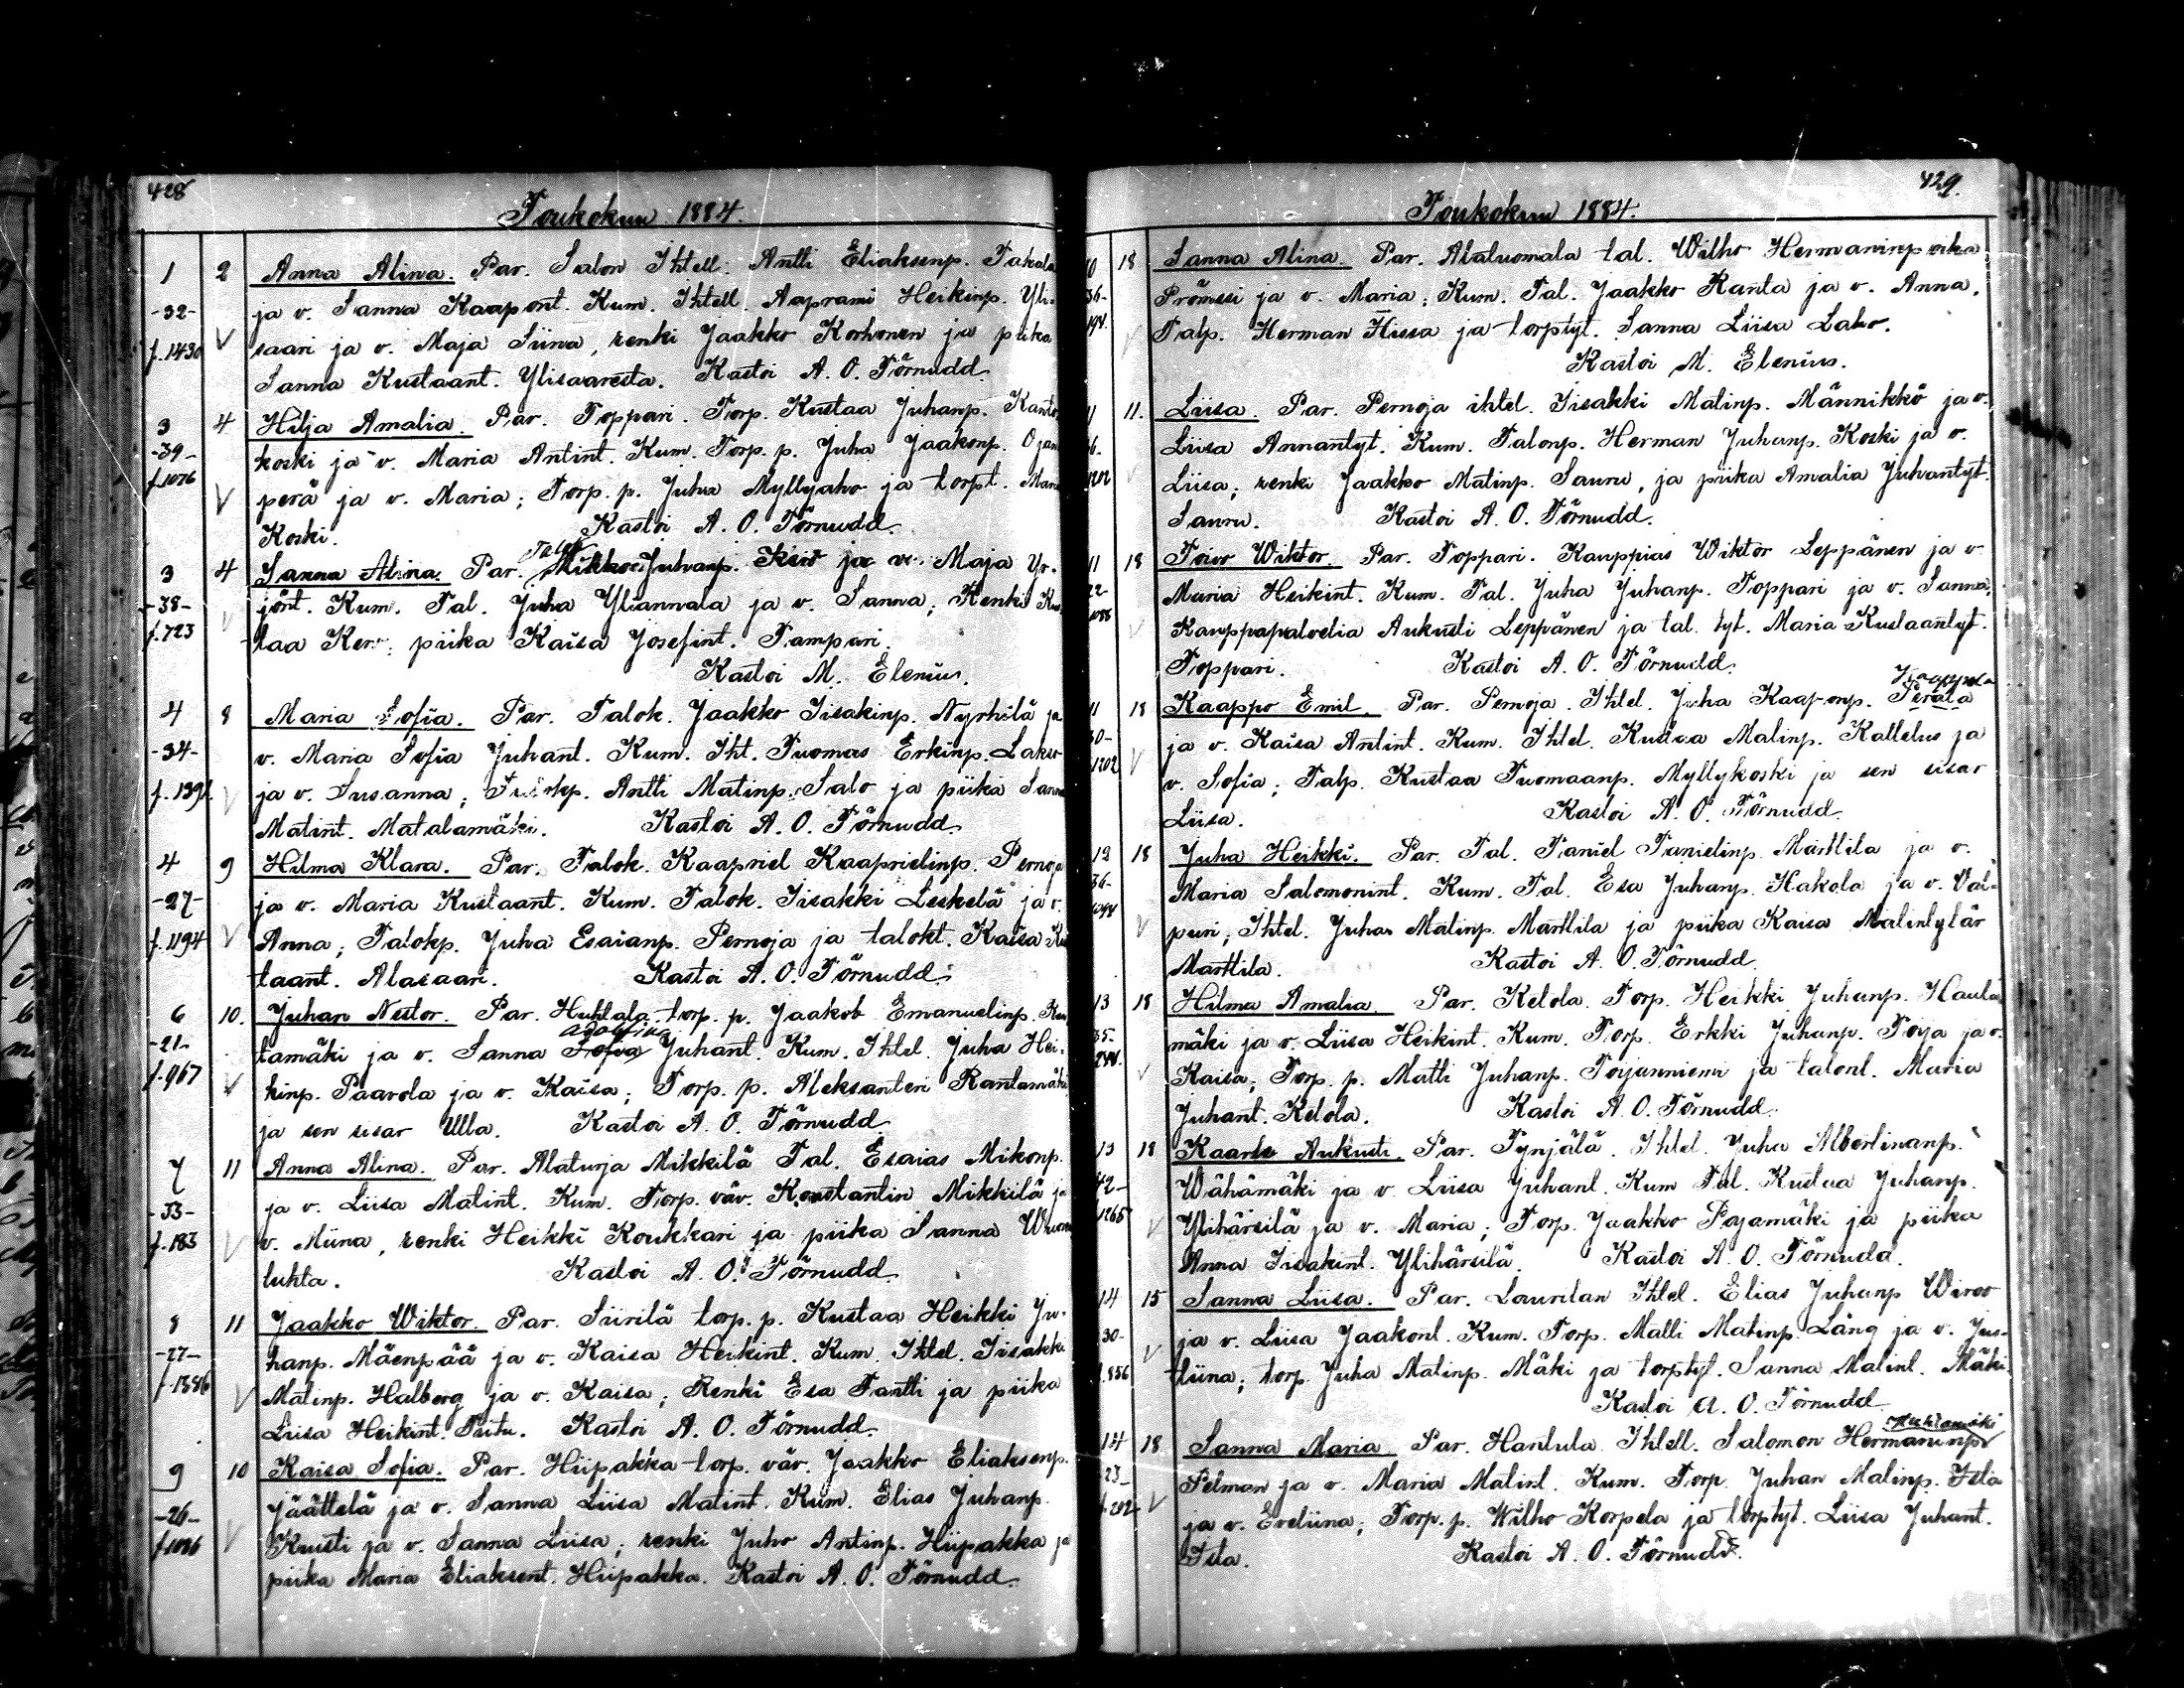 428
Toukokuu 1884.
1 2 Anna Alina. Par. Salon Ihtell. Antti Eliaksenp. Takala
-32- ja v. Sanna Kaapont. Kum. Ihtell. Aaprami Heikinp. Yli-
f.1430 saari ja v. Maja Stina, renki Jaakko Korhonen ja piika
Sanna Kustaant. Ylisaaresta. Kastoi A. O. Törnudd.
3 4 Hilja Amalia. Par. Toppari. Torp. Kustaa Juhanp. Kanto
-39- koski ja v. Maria Antint. Kum. Torp. p. Juha Jaakonp. Ojan
f.1076 perä ja v. Maria; Torp. p. Juha Myllyaho ja torpt. Maria
Koski. Kastoi A. O. Törnudd.
3 4 Sanna Alina. Par. Mikko Juhanp. ja v. Maja Yr-
-38- jönt. Kum. Tal. Juha Yliannala ja v. Sanna; Renki Kus
f.723 taa piika Kaisa Josefint. Tampari.
Kastoi M. Elenius.
4 8 Maria Sofia. Par. Talok. Jaakko Iisakinp. Nyrhilä ja
-34- v. Maria Sofia Juhant. Kum. Iht. Tuomas Erkinp. Lakso
ja v. Susanna; Antti Matinp. Salo ja piika Sanna
Matint. Matalamäki. Kastoi A. O. Törnudd.
4 9 Hilma Klara. Par. Talok. Kaapriel Kaaprielinp. Pernoja
-27- ja v. Maria Kustaant. Kum. Talok. Iisakki Leskelä ja v.
f.1194 Anna; Talokp. Juha Esaianp. Pernoja ja talokt. Kaisa Kus
taant. Alasaari. Kastoi A. O. Törnudd.
6 10. Juhan Nestor. Par. Huhtala torp. p. Jaakob Emanuelinp.
-21- tamäki ja v. Sanna Sofia Juhant. Kum. Ihtel. Juha Hei-
f.967 kinp. Paavola ja v. Kaisa; Torp. p. Aleksanteri Rantamäki
ja sen sisar Ulla. Kastoi A. O. Törnudd.
7 11 Anna Alina. Par. Alaturja Mikkilä Tal. Esaias Mikonp.
-33- ja v. Liisa Matint. Kum. Torp. väv. Konstantin Mikkilä ja
f.183 v. Miina, renki Heikki Koukkari ja piika Sanna Wuoren
luhta. Kastoi A. O. Törnudd.
8 11 Jaakko Wiktor. Par. Siirilä torp. p. Kustaa Heikki Ju-
-27- hanp. Mäenpää ja v. Kaisa Heikint. Kum. Ihtel. Iisakki
f.1386 Matinp. Halberg ja v. Kaisa; Renki Esa Tantti ja piika
Liisa Heikint. Kastoi A. O. Törnudd.
9 10 Kaisa Sofia. Par. Hiipakka torp. väv. Jaakko Eliaksenp.
-26- Jäättelä ja v. Sanna Liisa Matint. Kum. Elias Juhanp.
Kuusti ja v. Sanna Liisa; renki Juho Antinp. Hiipakka ja
piika Maria Eliaksent. Hiipakka. Kastoi A. O. Törnudd.
429.
Toukokuu 1884.
18 Sanna Alina. Par. Alaluomala tal. Wilho Hermaninpoika
Prömssi ja v. Maria; Kum. Tal. Jaakko Ranta ja v. Anna,
Talp. Herman Hissa ja torptyt. Sanna Liisa Laho.
Kastoi M. Elenius.
11 11. Liisa. Par. Pernoja ihtel. Iisakki Matinp. Männikkö ja v.
Liisa Annantyt. Kum. Talonp. Herman Juhanp. Koski ja v.
1202 Liisa; renki Jaakko Matinp. Sauru, ja piika Amalia Juhantyt.
Sauru. Kastoi A. O. Törnudd.
11 18 Toivo Wiktor. Par. Toppari. Kauppias Wiktor Leppänen ja v.
22- Maria Heikint. Kum. Tal. Juha Juhanp. Toppari ja v. Sanna,
Kauppapalvelia Aukusti Leppänen ja tal. tyt. Maria Kustaantyt.
Toppari. Kastoi A. O. Törnudd.
11 18 Kaappo Emil. Par. Pernoja. Ihtel. Juha Kaaponp. Perälä
30- ja v. Kaisa Antint. Kum. Ihtel. Kustaa Matinp. Kattelus ja
1202 v. Sofia; Talp. Kustaa Tuomaanp. Myllykoski ja sen sisar
Liisa. Kastoi A. O. Törnudd.
12 18 Juha Heikki. Par. Tal. Taniel Tanielinp. Marttila ja v.
36- Maria Salomonint. Kum. Tal. Esa Juhanp. Hakola ja v. Val-
puri; Ihtel. Juhan Matinp. Marttila ja piika Kaisa Matintytär
Marttila. Kastoi A. O. Törnudd.
13 18 Hilma Amalia. Par. Ketola. Torp. Heikki Juhanp. Hauta
35- mäki ja v. Liisa Heikint. Kum. Torp. Erkki Juhanp. Toija ja v.
Kaisa; Torp. p. Matti Juhanp. Toijanniemi ja talont. Maria
Juhant. Ketola. Kastoi A. O. Törnudd.
13 18 Kaarle Aukusti. Par. Tynjälä. Ihtel. Juha Albertinanp.
42- Wähämäki ja v. Liisa Juhant. Kum Tal. Kustaa Juhanp.
1265 Ylihärsilä ja v. Maria; Torp. Jaakko Pajamäki ja piika
Anna Iisakint. Ylihärsilä. Kastoi A. O. Törnudd.
14 15 Sanna Liisa. Par. Laurilan Ihtel. Elias Juhanp
30- ja v. Liisa Jaakont. Kum. Torp. Matti Matinp. Lång ja v. Jus-
f.856 tiina; torp. Juha Matinp. Mäki ja torptyt. Sanna Matint. Mäki.
Kastoi A. O. Törnudd.
14 18 Sanna Maria. Par. Hantula. Ihtell. Salomon Hermaninp
23- Pelman ja v. Maria Matint. Kum. Torp. Juhan Matinp. Isla
ja v. Eveliina; Torp. p. Wilho Korpela ja torptyt. Liisa Juhant.
Isla. Kastoi A. O. Törnudd.